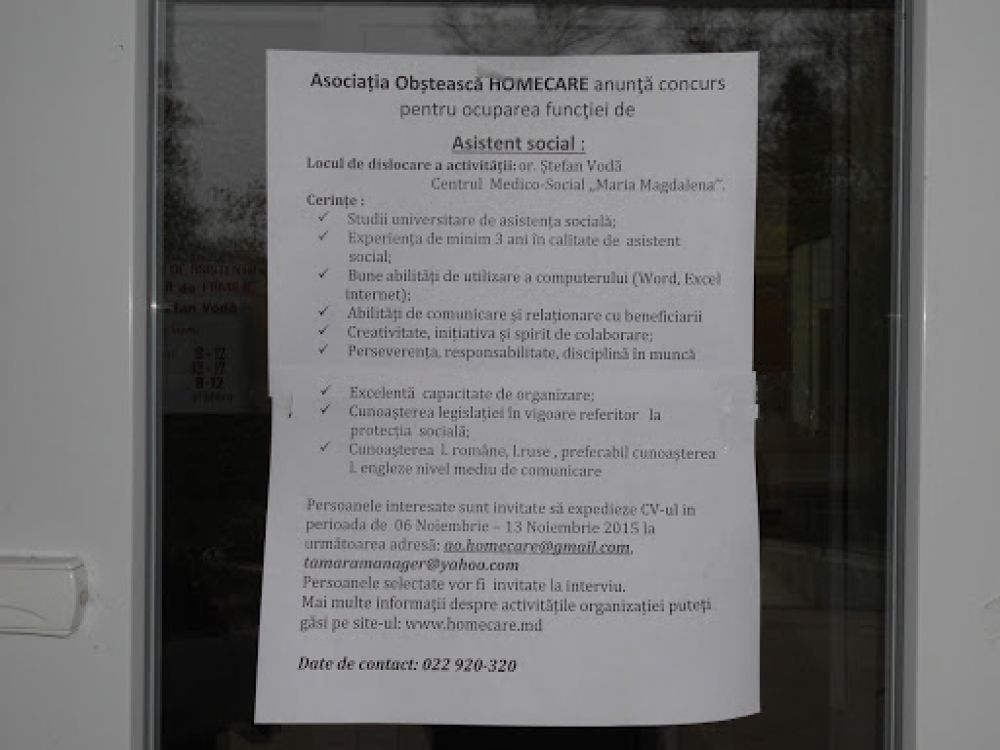 Asociația Obștească HOMECARE anunță concurs
pentru ocuparea funcției de
Asistent social :
Locul de dislocare a activității: or. Ștefan Vodă
Centrul Medico-Social „Maria Magdalena”.
Cerințe :
✓ Studii universitare de asistența socială;
✓ Experiența de minim 3 ani în calitate de asistent
social;
✓ Bune abilități de utilizare a computerului (Word, Excel
internet);
✓ Abilități de comunicare și relaționare cu beneficiarii
✓ Creativitate, inițiativa și spirit de colaborare;
✓ Perseverența, responsabilitate, disciplină în muncă
✓ Excelentă capacitate de organizare;
✓ Cunoașterea legislației în vigoare referitor la
protecția socială;
✓ Cunoașterea l. române, l.ruse , preferabil cunoașterea
l. engleze nivel mediu de comunicare
Persoanele interesate sunt invitate să expedieze CV-ul in
perioada de 06 Noiembrie – 13 Noiembrie 2015 la
următoarea adresă: ao.homecare@gmail.com,
tamaramanager@yahoo.com
Persoanele selectate vor fi invitate la interviu.
Mai multe informații despre activitățile organizației puteți
găsi pe site-ul: www.homecare.md
Date de contact: 022 920-320
DE ASISTENȚĂ
de FAMILIE
fan Vodă
8-12
13-17
8-12